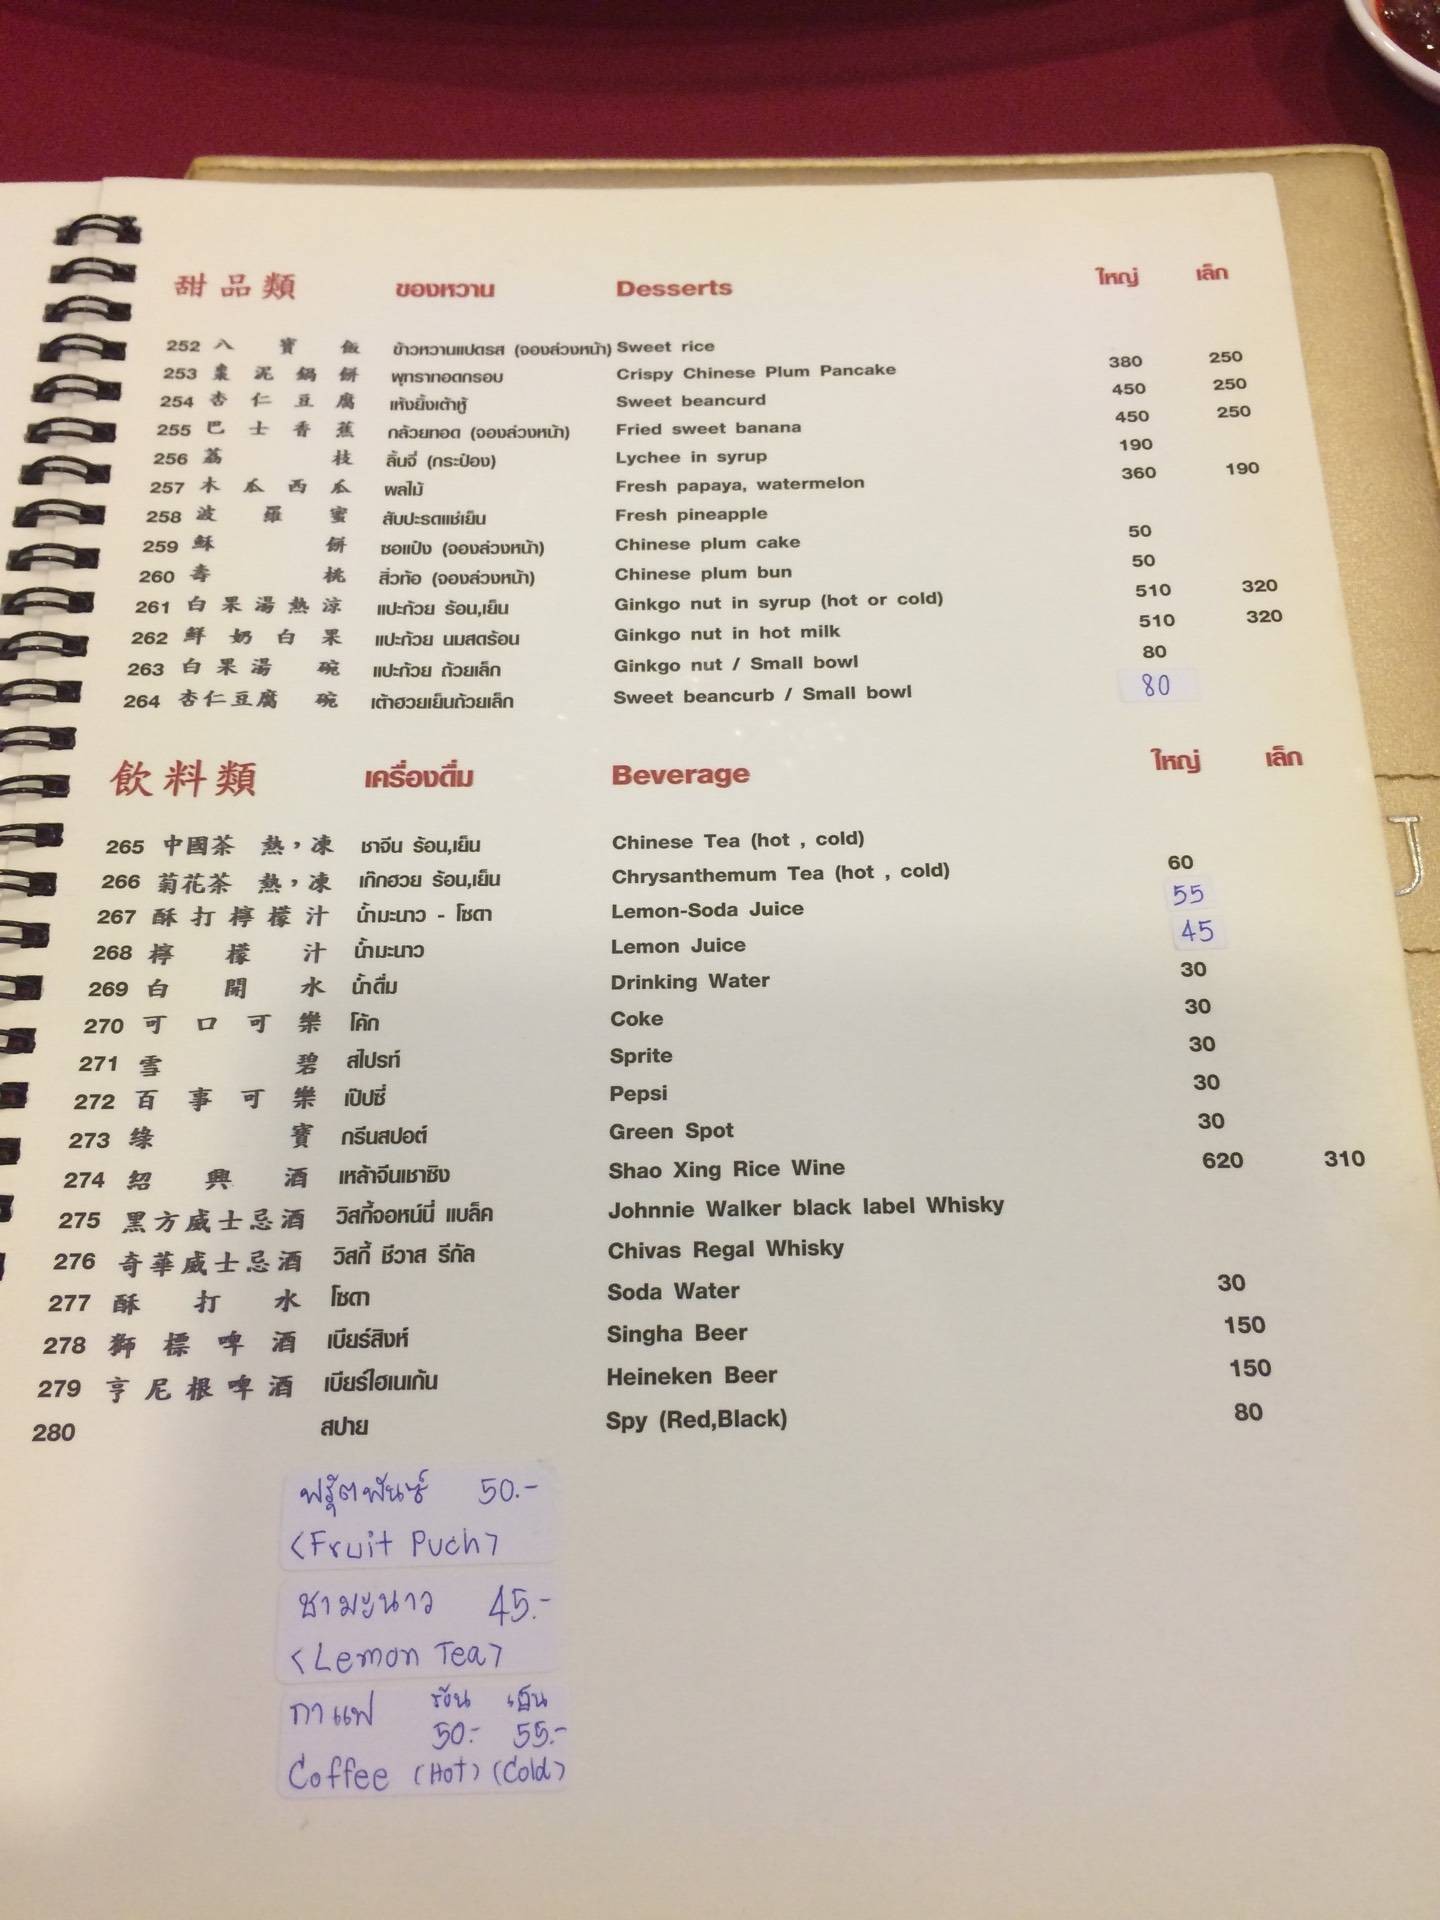 甜品類 ของหวาน Desserts ใหญ่ เล็ก
252 八寶飯 ข้าวหวานแปดรส (จองล่วงหน้า) Sweet rice
253 棗泥鍋餅 พุทราทอดกรอบ Crispy Chinese Plum Pancake 380 250
254 杏仁豆腐 เห้งยิ้งเต้าหู้ Sweet beancurd 450 250
255 巴士香蕉 กล้วยทอด (จองล่วงหน้า) Fried sweet banana 450 250
256 荔枝 ลิ้นจี่ (กระป๋อง) Lychee in syrup 190
257 木瓜西瓜 ผลไม้ Fresh papaya, watermelon 360 190
258 波羅蜜 สับปะรดแช่เย็น Fresh pineapple
259 酥餅 ซอแป่ง (จองล่วงหน้า) Chinese plum cake 50
260 壽桃 สิ่วท้อ (จองล่วงหน้า) Chinese plum bun 50
261 白果湯熱涼 แปะก้วย ร้อน,เย็น Ginkgo nut in syrup (hot or cold) 510 320
262 鮮奶白果 แปะก้วย นมสดร้อน Ginkgo nut in hot milk 510 320
263 白果湯 碗 แปะก้วย ถ้วยเล็ก Ginkgo nut / Small bowl 80
264 杏仁豆腐 碗 เต้าฮวยเย็นถ้วยเล็ก Sweet beancurb / Small bowl 80
飲料類 เครื่องดื่ม Beverage ใหญ่ เล็ก
265 中國茶 熱，凍 ชาจีน ร้อน,เย็น Chinese Tea (hot , cold)
266 菊花茶 熱，凍 เก๊กฮวย ร้อน,เย็น Chrysanthemum Tea (hot , cold) 60
267 酥打檸檬汁 น้ำมะนาว - โซดา Lemon-Soda Juice 55
268 檸檬汁 น้ำมะนาว Lemon Juice 45
269 白開水 น้ำดื่ม Drinking Water 30
270 可口可樂 โค้ก Coke 30
271 雪碧 สไปรท์ Sprite 30
272 百事可樂 เป๊ปซี่ Pepsi 30
273 綠寶 กรีนสปอต์ Green Spot 30
274 紹興酒 เหล้าจีนเชาชิง Shao Xing Rice Wine 620 310
275 黑方威士忌酒 วิสกี้จอหน์นี่ แบล็ค Johnnie Walker black label Whisky
276 奇華威士忌酒 วิสกี้ ชีวาส รีกัล Chivas Regal Whisky
277 酥打水 โซดา Soda Water 30
278 獅標啤酒 เบียร์สิงห์ Singha Beer 150
279 亨尼根啤酒 เบียร์ไฮเนเก้น Heineken Beer 150
280 สปาย Spy (Red,Black) 80
ฟรุ๊ตพันช์ 50.-
<Fruit Puch>
ชามะนาว 45.-
<Lemon Tea>
กาแฟ ร้อน เย็น
50.- 55.-
Coffee (Hot) (Cold)
J